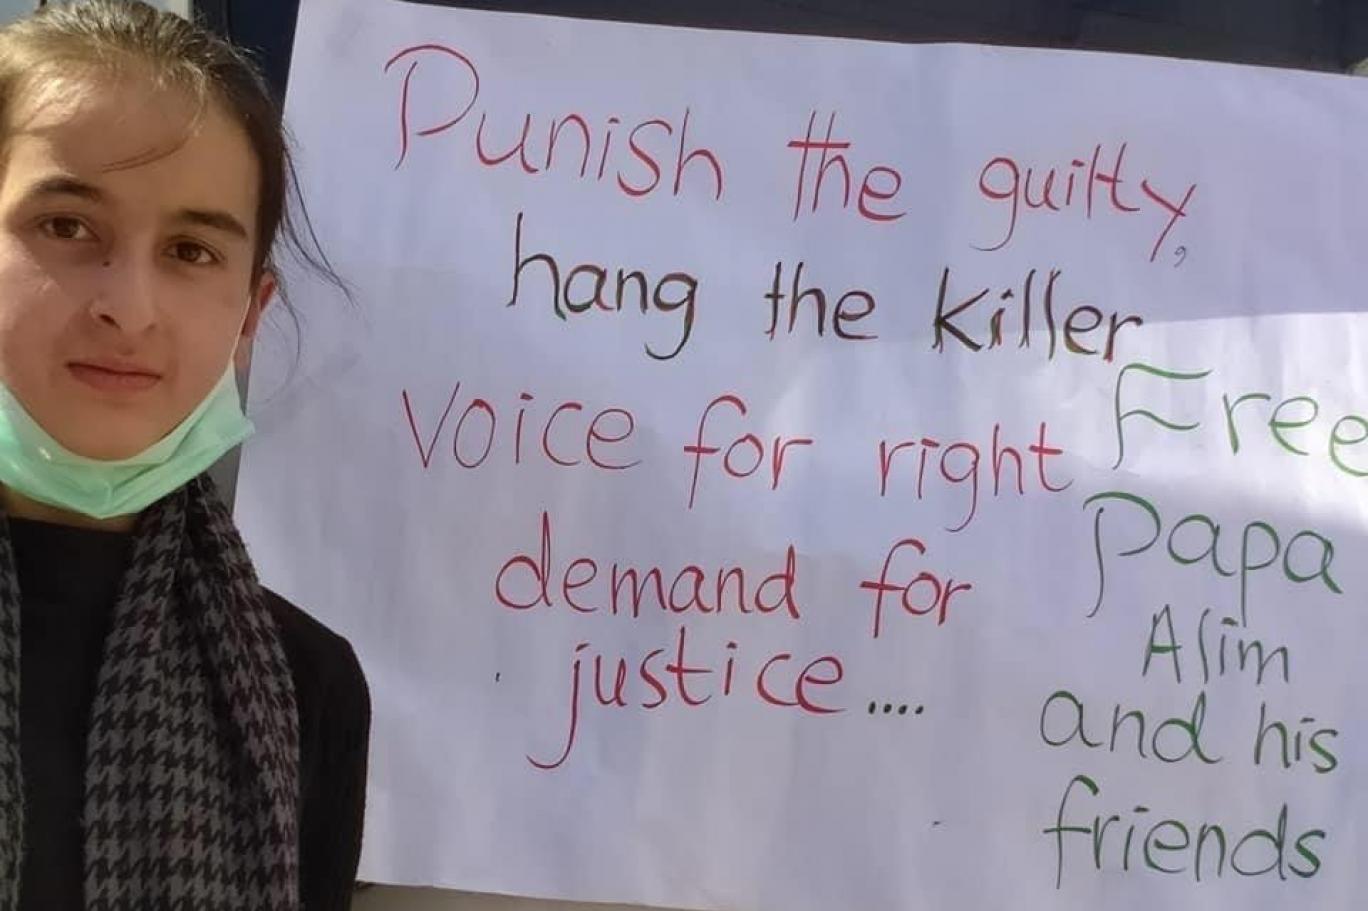 Punish the guilty,
hang the killer
Voice for right
demand for
justice....
Free
Papa
Alim
and his
friends